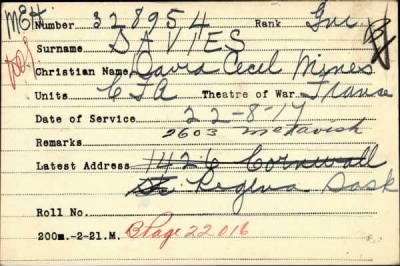 MEH
Number 328954 Rank Gnr.
Surname DAVIES
Christian Name David Cecil Mines
Units CFA Theatre of War France
Date of Service 22-8-17
Remarks 2603 McTavish
Latest Address 1426 Cornwall
St Regina Sask
Roll No.
200m.-2-21.M. B Page 22016